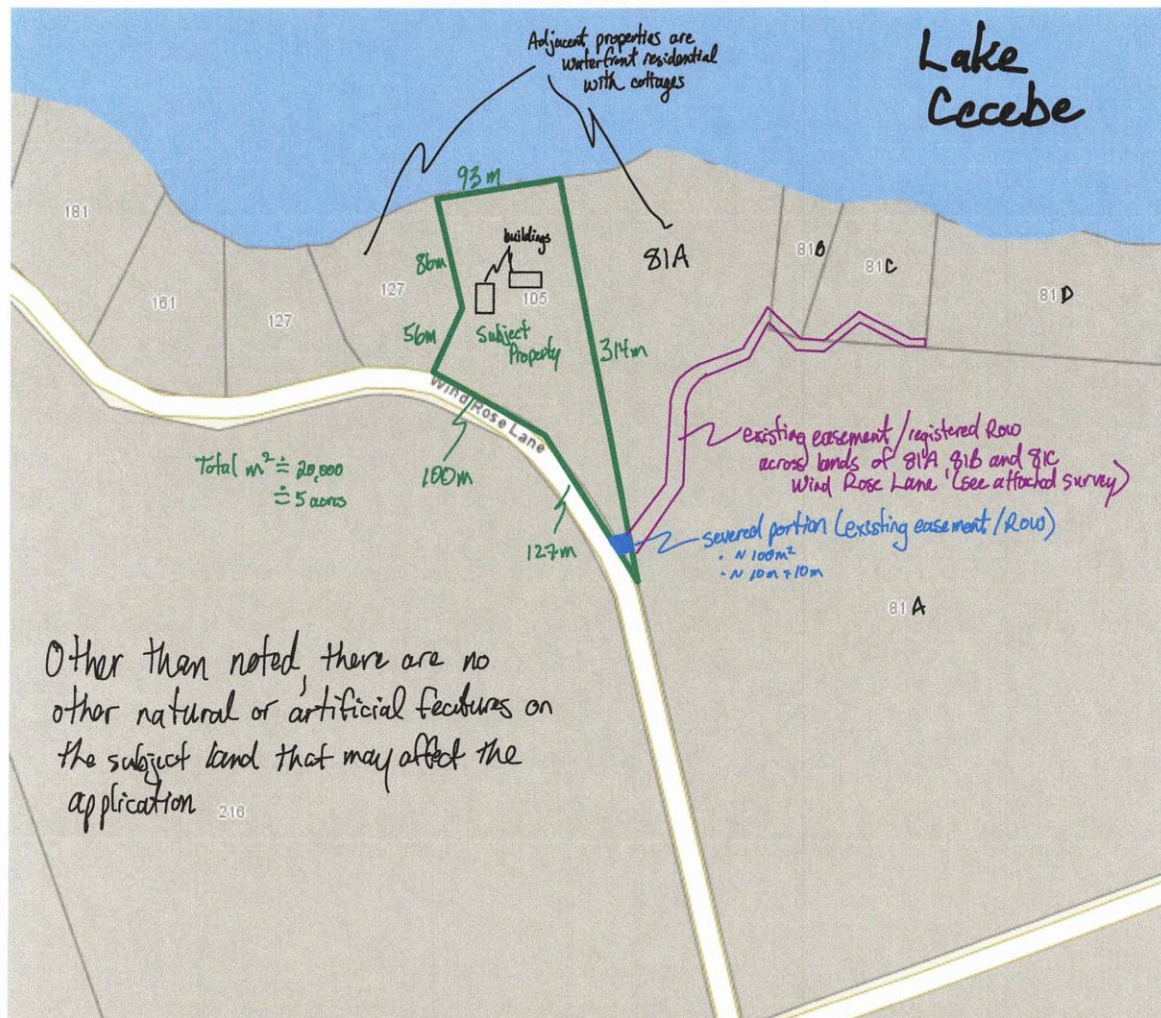 Adjacent properties are
waterfront residential
with cottages
Lake
Cecebe
93 m
181
86m
buildings
127
105
81A
81B
81C
81D
161
127
56m
Subject
Property
314m
Wind Rose Lane
existing easement/registered Row
across lands of 81A, 81B and 81C
Wind Rose Lane (see attached survey)
Total m² ≐ 20,000
≐ 5 acres
100m
127m
severed portion (existing easement/Row)
• ~ 100m²
• ~ 10m × 10m
81A
Other than noted, there are no
other natural or artificial features on
the subject land that may affect the
application
216